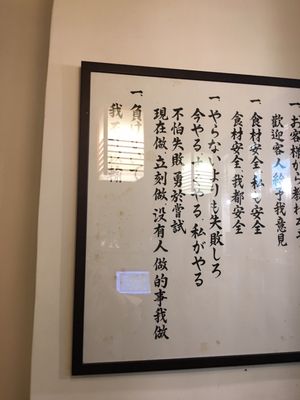 一お客様から教わ
歡迎客人給予我意見
一食材安全、私も安全
食材安全 我都安全
一やらないよりも失敗しろ
今やる、やる、私がやる
不怕失敗 勇於嘗試
現在做 立刻做 沒有人做的事我做
一負け
我